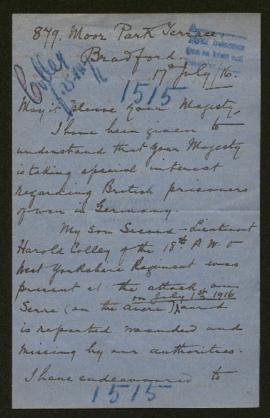 879. Moor Park Terrace,
Bradford.
17th July/16.
Colley
1515
May it please your Majesty,
I have been given to
understand that your Majesty
is taking special interest
regarding British prisoners
of war in Germany.
My son Second-Lieutenant
Harold Colley of the 18th P.W.O
West Yorkshire Regiment was
present at the attack on
Serre (on the Ancre)
on July 1st 1916
and
is reported wounded and
missing by our authorities.
I have endeavoured to
1515